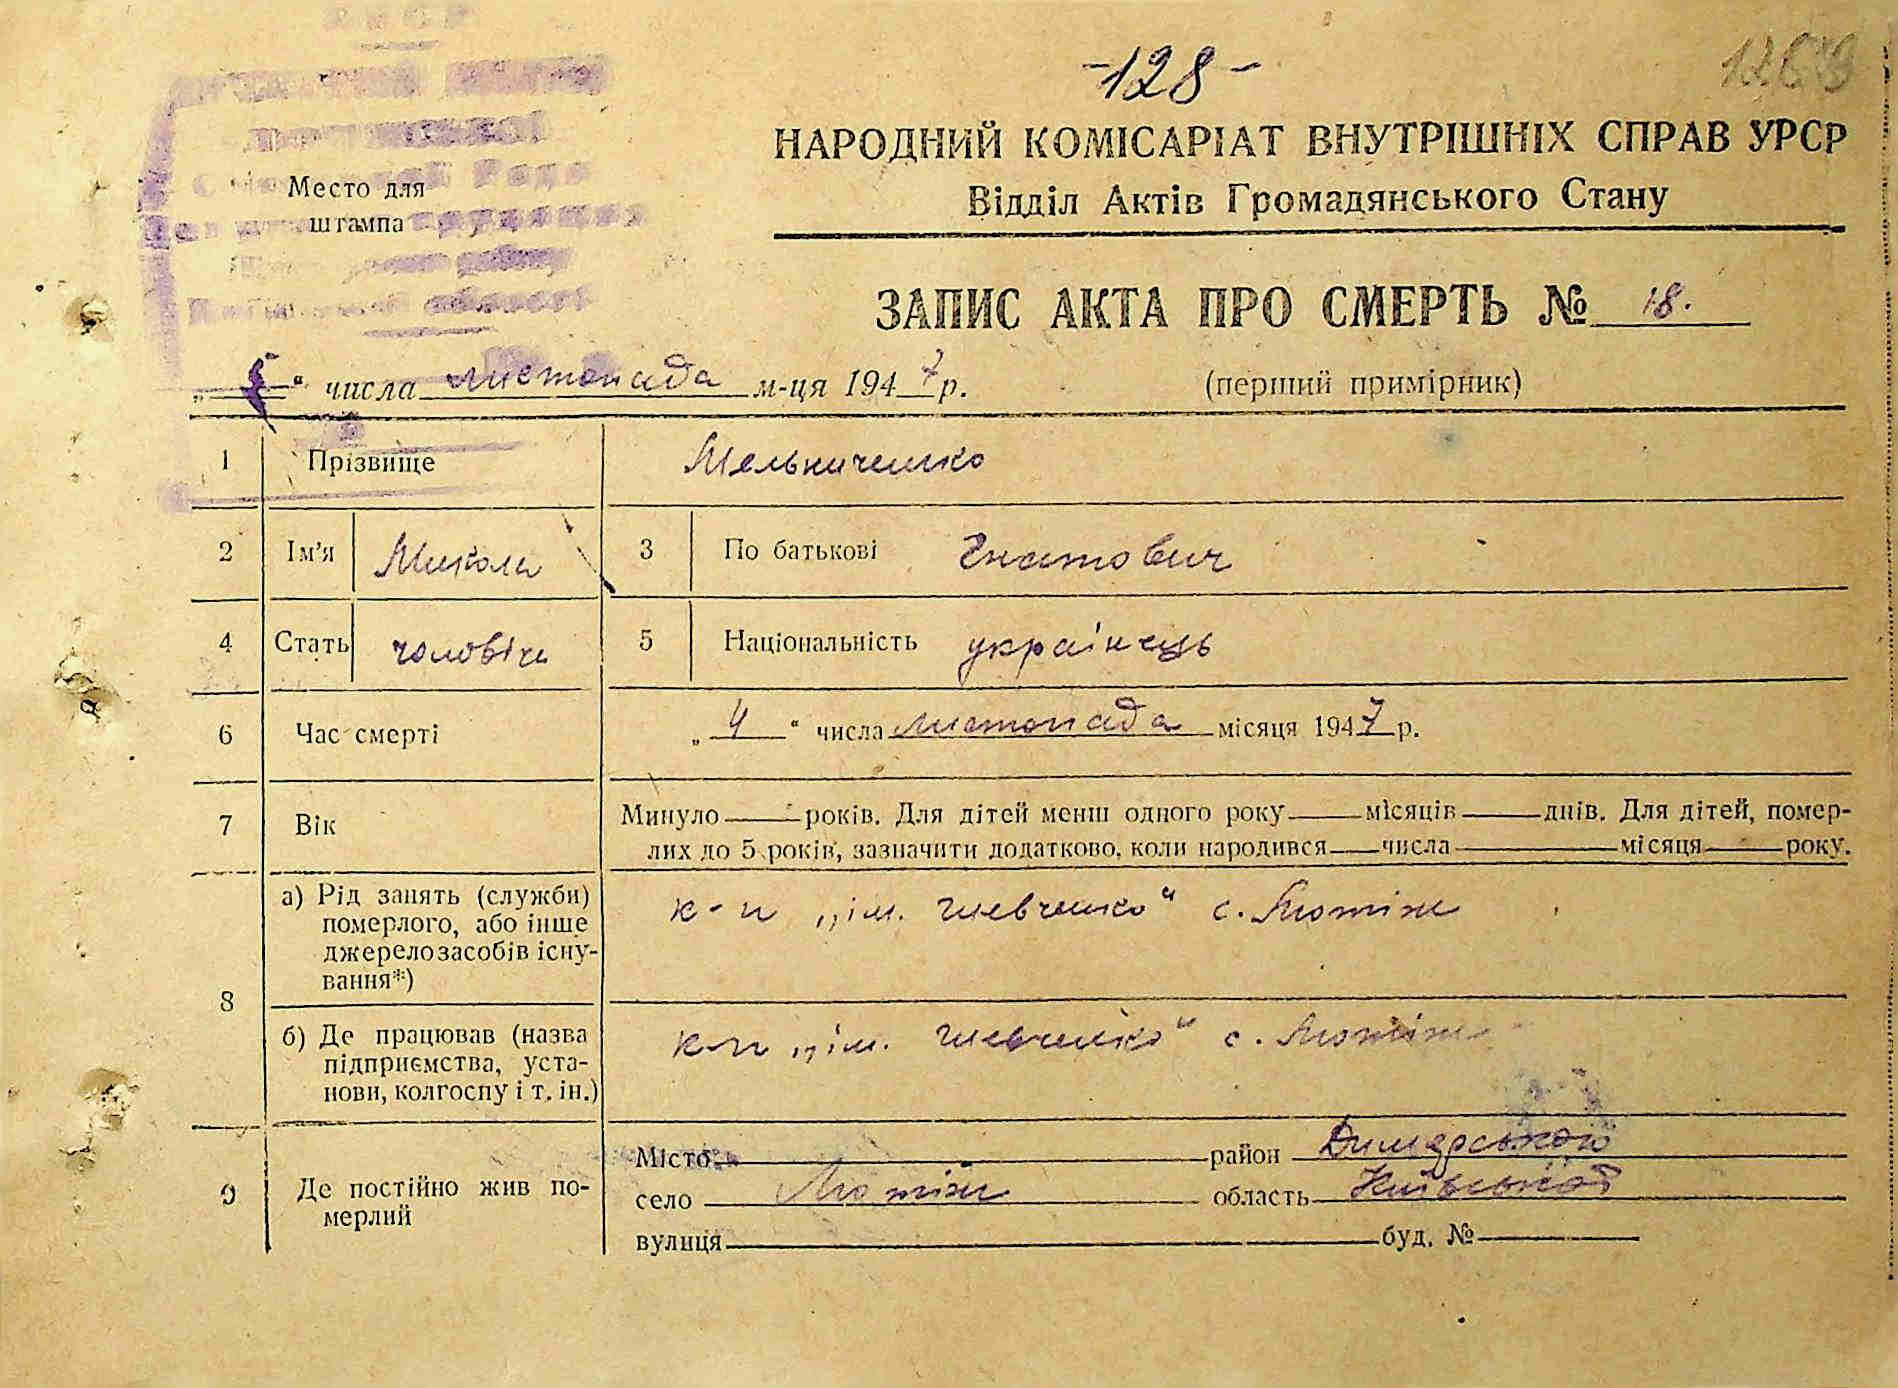 -128-
НАРОДНИЙ КОМІСАРІАТ ВНУТРІШНІХ СПРАВ УРСР
Відділ Актів Громадянського Стану
Место для
штампа
ЗАПИС АКТА ПРО СМЕРТЬ № 18.
„ “ числа листопада м-ця 1947 р.
(перший примірник)
1 Прізвище Мельниченко
2 Ім'я Микола 3 По батькові Гнатович
4 Стать чоловіча 5 Національність українець
6 Час смерті „ 4 “ числа листопада місяця 1947 р.
7 Вік Минуло років. Для дітей менш одного року місяців днів. Для дітей, помер-
лих до 5 років, зазначити додатково, коли народився числа місяця року.
8 а) Рід занять (служби)
померлого, або інше
джерело засобів існу-
вання*)
к-п „ім. Шевченко“ с. Лютіж
б) Де працював (назва
підприємства, уста-
нови, колгоспу і т. ін.)
к-п „ім. Шевченко“ с. Лютіж
9 Де постійно жив по-
мерлий
Місто район Димерського
село Лютіж область Київської
вулиця буд. №